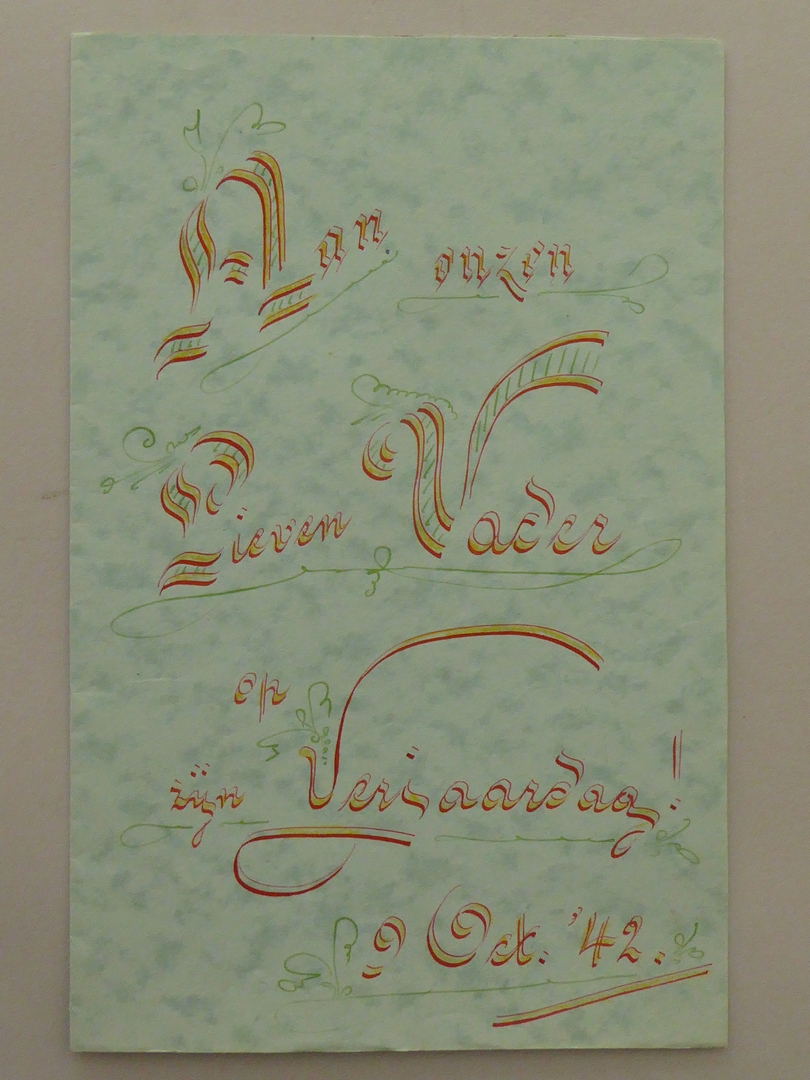 Aan onzen
Lieven Vader
op
zijn Verjaardag!
9 Oct. '42.